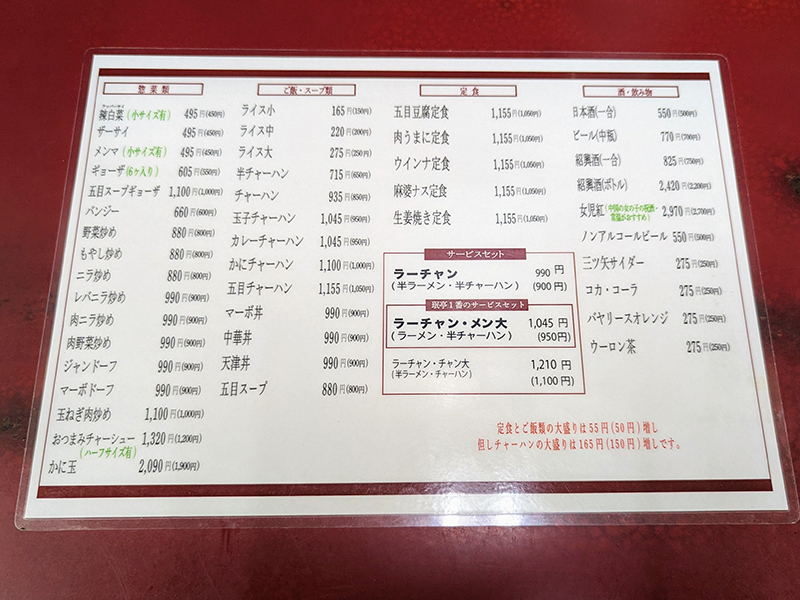 惣菜類
辣白菜(小サイズ有) 495円(450円)
ザーサイ 495円(450円)
メンマ(小サイズ有) 495円(450円)
ギョーザ(6ヶ入り) 605円(550円)
五目スープギョーザ 1,100円(1,000円)
バンジー 660円(600円)
野菜炒め 880円(800円)
もやし炒め 880円(800円)
ニラ炒め 880円(800円)
レバニラ炒め 990円(900円)
肉ニラ炒め 990円(900円)
肉野菜炒め 990円(900円)
ジャンドーフ 990円(900円)
マーボドーフ 990円(900円)
玉ねぎ肉炒め 1,100円(1,000円)
おつまみチャーシュー 1,320円(1,200円)
(ハーフサイズ有)
かに玉 2,090円(1,900円)
ご飯・スープ類
ライス小 165円(150円)
ライス中 220円(200円)
ライス大 275円(250円)
半チャーハン 715円(650円)
チャーハン 935円(850円)
玉子チャーハン 1,045円(950円)
カレーチャーハン 1,045円(950円)
かにチャーハン 1,100円(1,000円)
五目チャーハン 1,155円(1,050円)
マーボ丼 990円(900円)
中華丼 990円(900円)
天津丼 990円(900円)
五目スープ 880円(800円)
定食
五目豆腐定食 1,155円(1,050円)
肉うまに定食 1,155円(1,050円)
ウインナ定食 1,155円(1,050円)
麻婆ナス定食 1,155円(1,050円)
生姜焼き定食 1,155円(1,050円)
サービスセット
ラーチャン 990円
(半ラーメン・半チャーハン) (900円)
珉亭1番のサービスセット
ラーチャン・メン大 1,045円
(ラーメン・半チャーハン) (950円)
ラーチャン・チャン大 1,210円
(半ラーメン・チャーハン) (1,100円)
酒・飲み物
日本酒(一合) 550円(500円)
ビール(中瓶) 770円(700円)
紹興酒(一合) 825円(750円)
紹興酒(ボトル) 2,420円(2,200円)
女児紅(中国の女の子の祝酒・常温がおすすめ) 2,970円(2,700円)
ノンアルコールビール 550円(500円)
三ツ矢サイダー 275円(250円)
コカ・コーラ 275円(250円)
バヤリースオレンジ 275円(250円)
ウーロン茶 275円(250円)
定食とご飯類の大盛りは55円(50円)増し
但しチャーハンの大盛りは165円(150円)増しです。